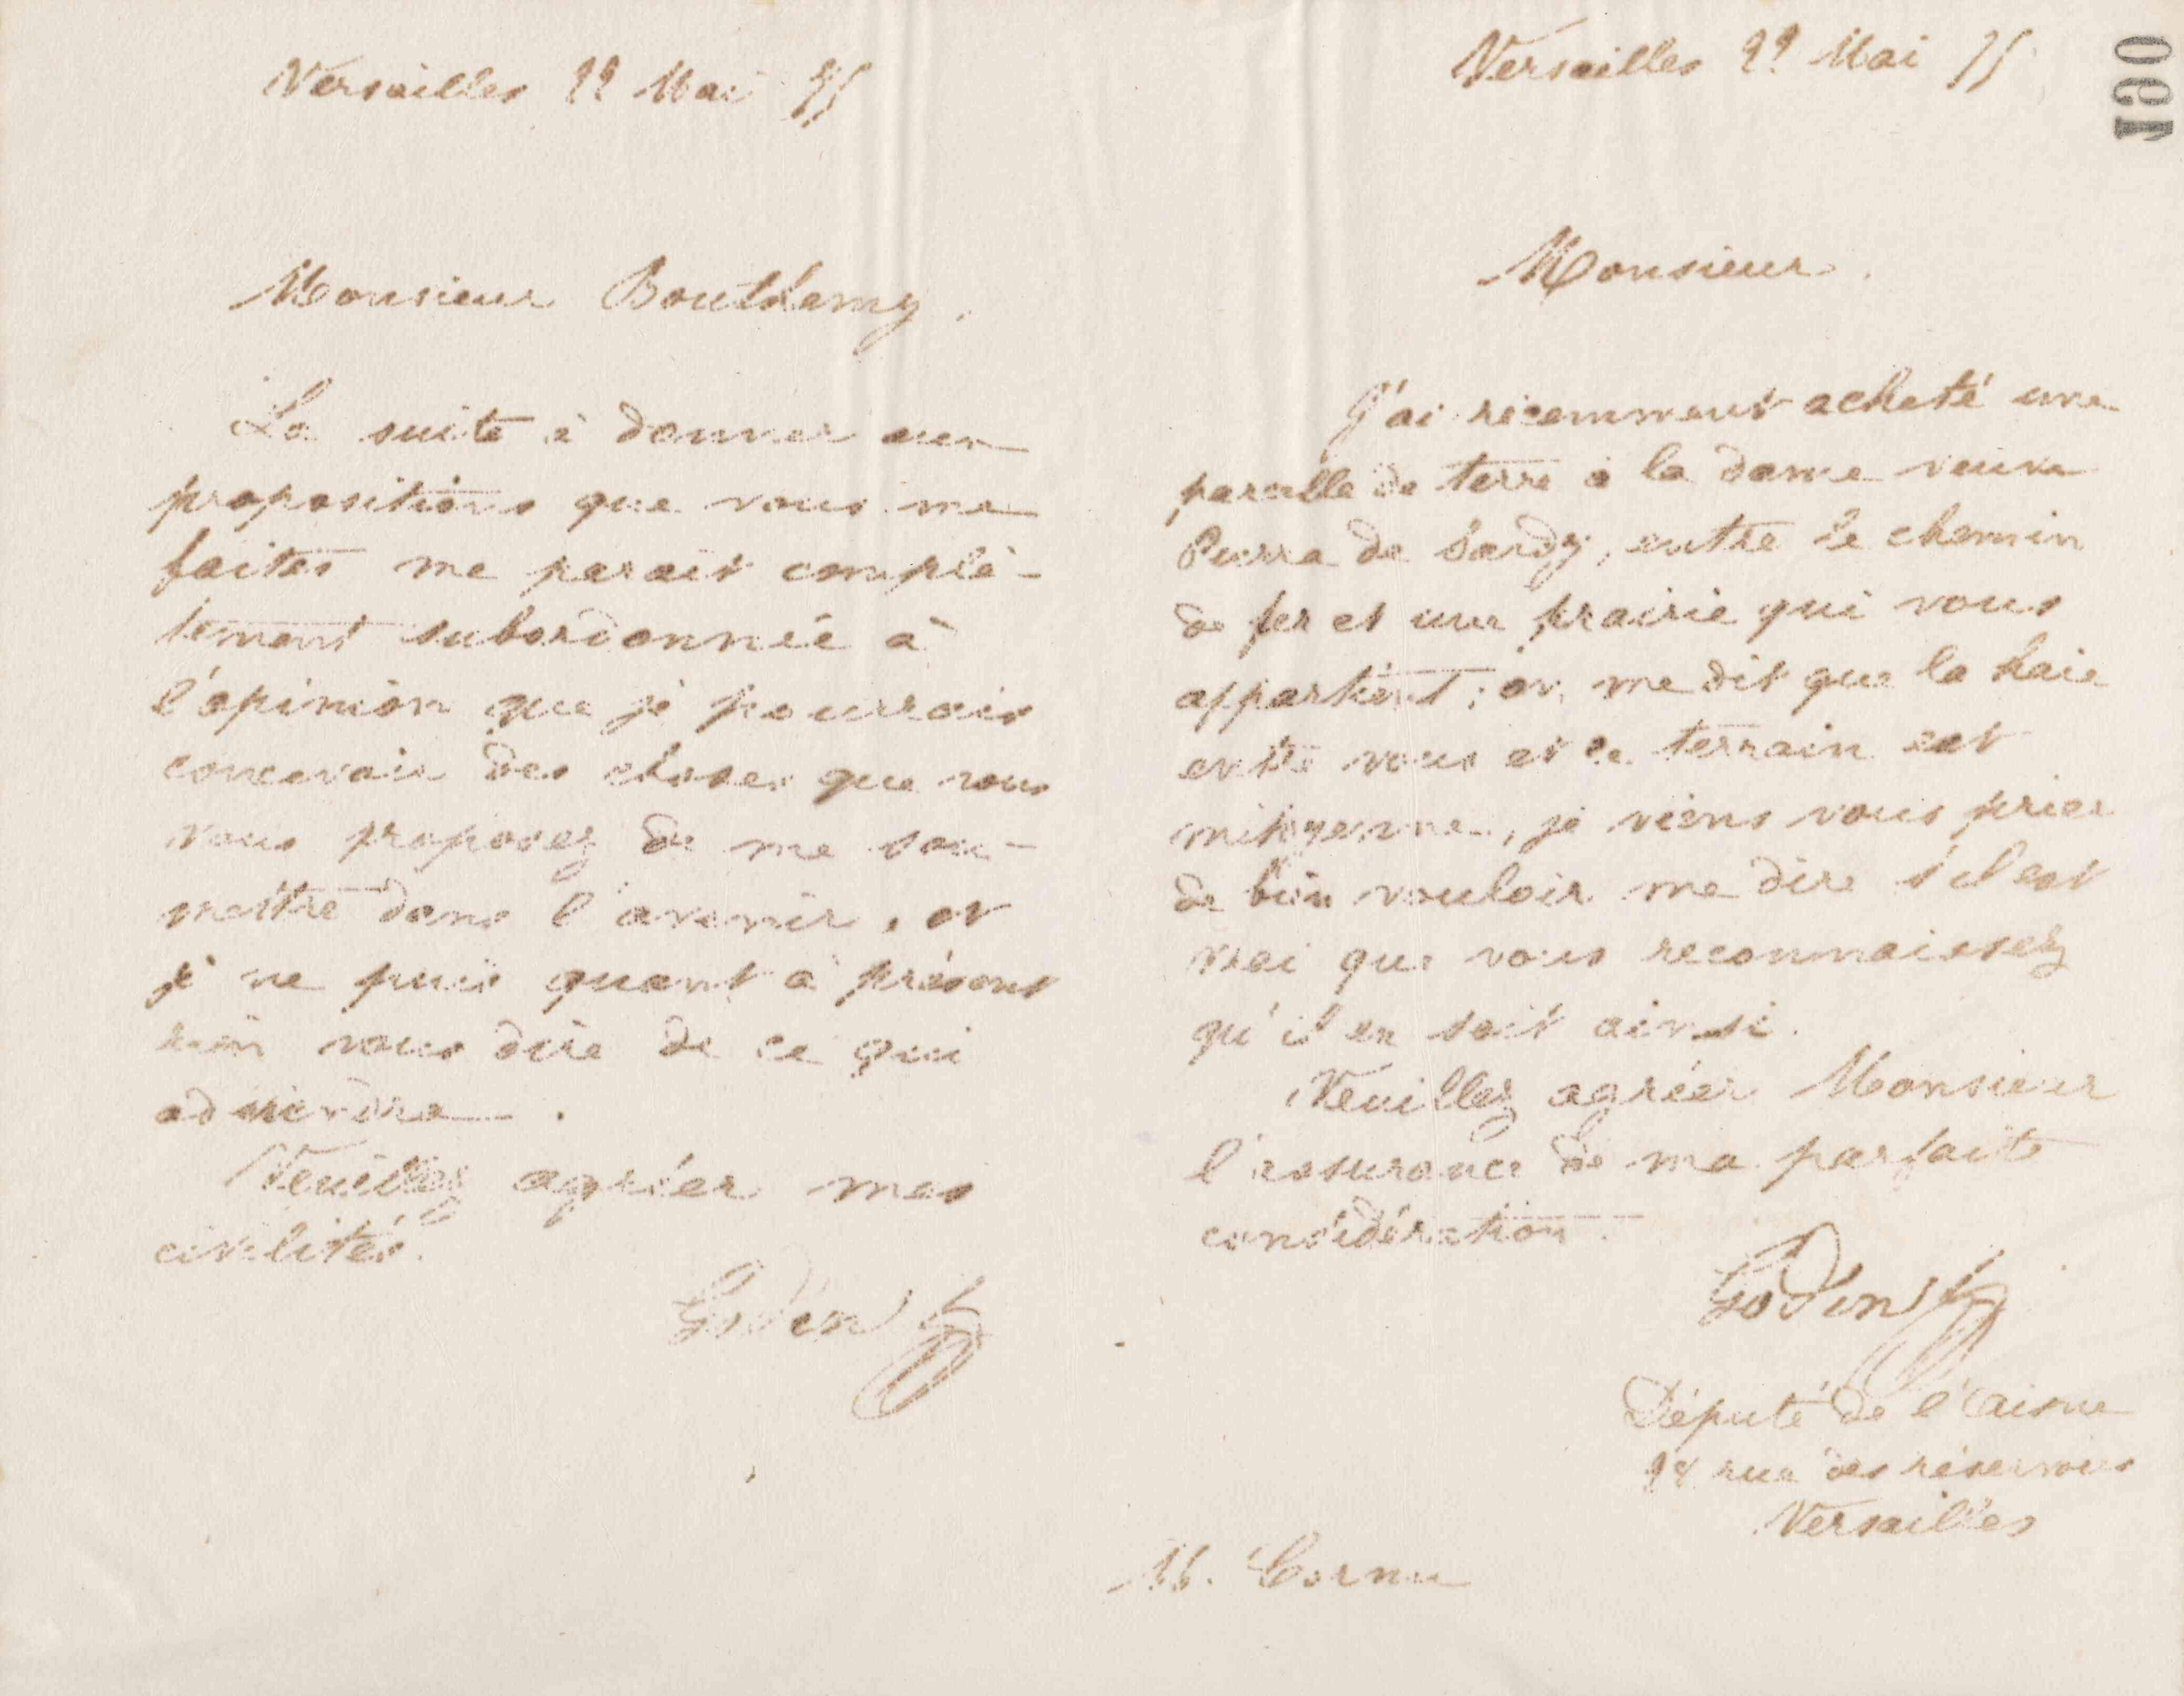 Versailles 22 Mai 75
Monsieur Bouthamy.
La suite à donner aux
propositions que vous me
faites me parait complè-
tement subordonnée à
l'opinion que je pourrais
concevoir des choses que vous
vous proposez de me sou-
mettre dans l'avenir, et
je ne puis quant à présent
rien vous dire de ce qui
adviendra.
Veuillez agréer mes
civilités.
Godin
190
Versailles 22 Mai 75
Monsieur.
J'ai récemment acheté une
parcelle de terre à la dame veuve
de Sardy, entre le chemin
de fer et une prairie qui vous
appartient; on me dit que la haie
entre vous et ce terrain est
mitoyenne, je viens vous prier
de bien vouloir me dire s'il est
vrai que vous reconnaissez
qu'il en soit ainsi.
Veuillez agréer Monsieur
l'assurance de ma parfaite
considération.
Godin
Député de l'Aisne
rue des réservoirs
Versailles
M. Cornu